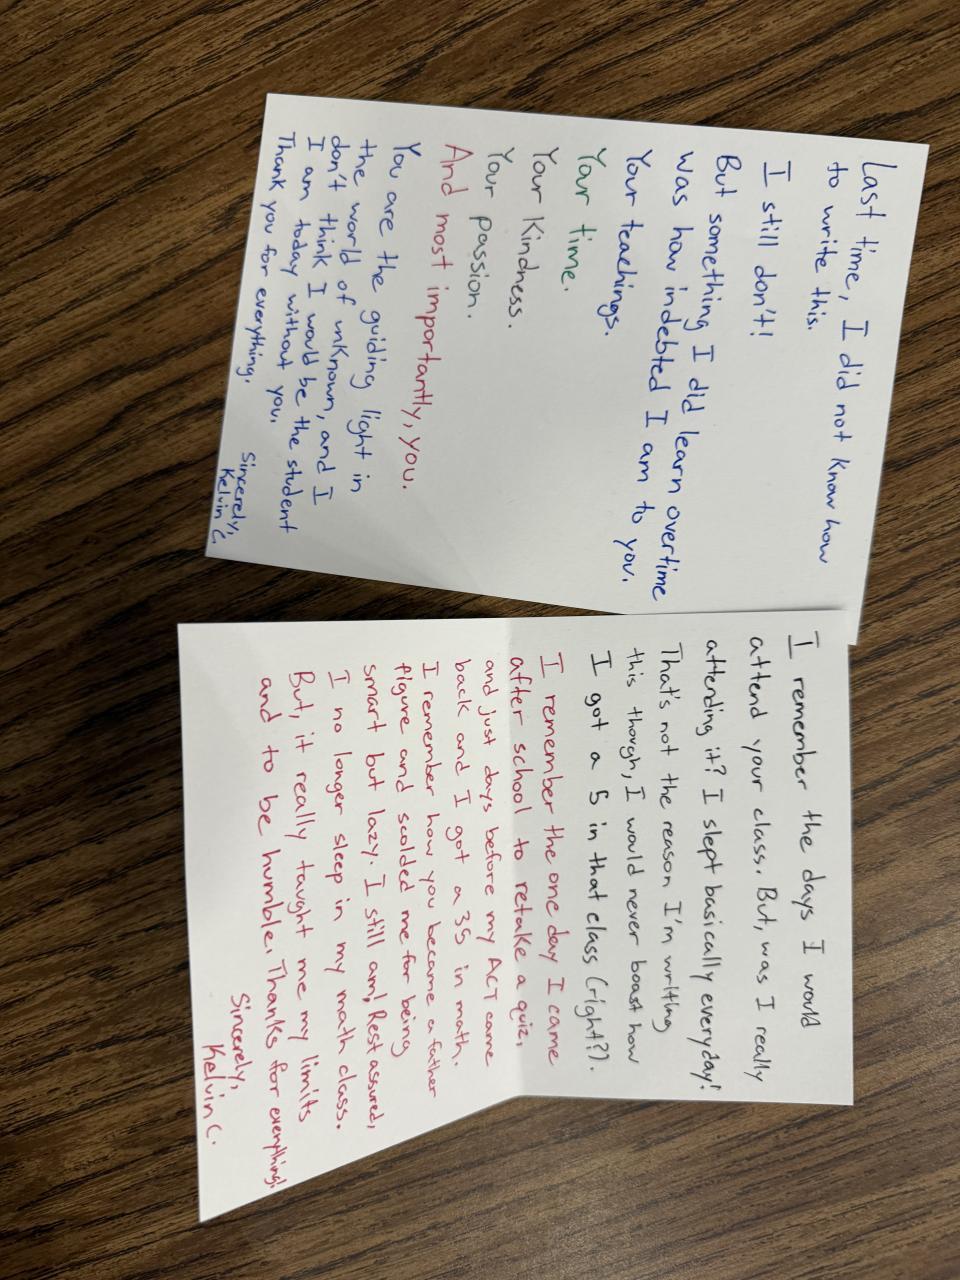 Last time, I did not know how
to write this.
I still don't!
But something I did learn overtime
was how indebted I am to you.
Your teachings.
Your time.
Your Kindness.
Your passion.
And most importantly, you.
You are the guiding light in
the world of unknown, and I
don't think I would be the student
I am today without you.
Thank you for everything.
Sincerely,
Kelvin C.
I remember the days I would
attend your class. But, was I really
attending it? I slept basically everyday!
That's not the reason I'm writing
this though, I would never boast how
I got a 5 in that class (right?).
I remember the one day I came
after school to retake a quiz,
and just days before my ACT came
back and I got a 35 in math.
I remember how you became a father
figure and scolded me for being
smart but lazy. I still am! Rest assured,
I no longer sleep in my math class.
But, it really taught me my limits
and to be humble. Thanks for everything!
Sincerely,
Kelvin C.